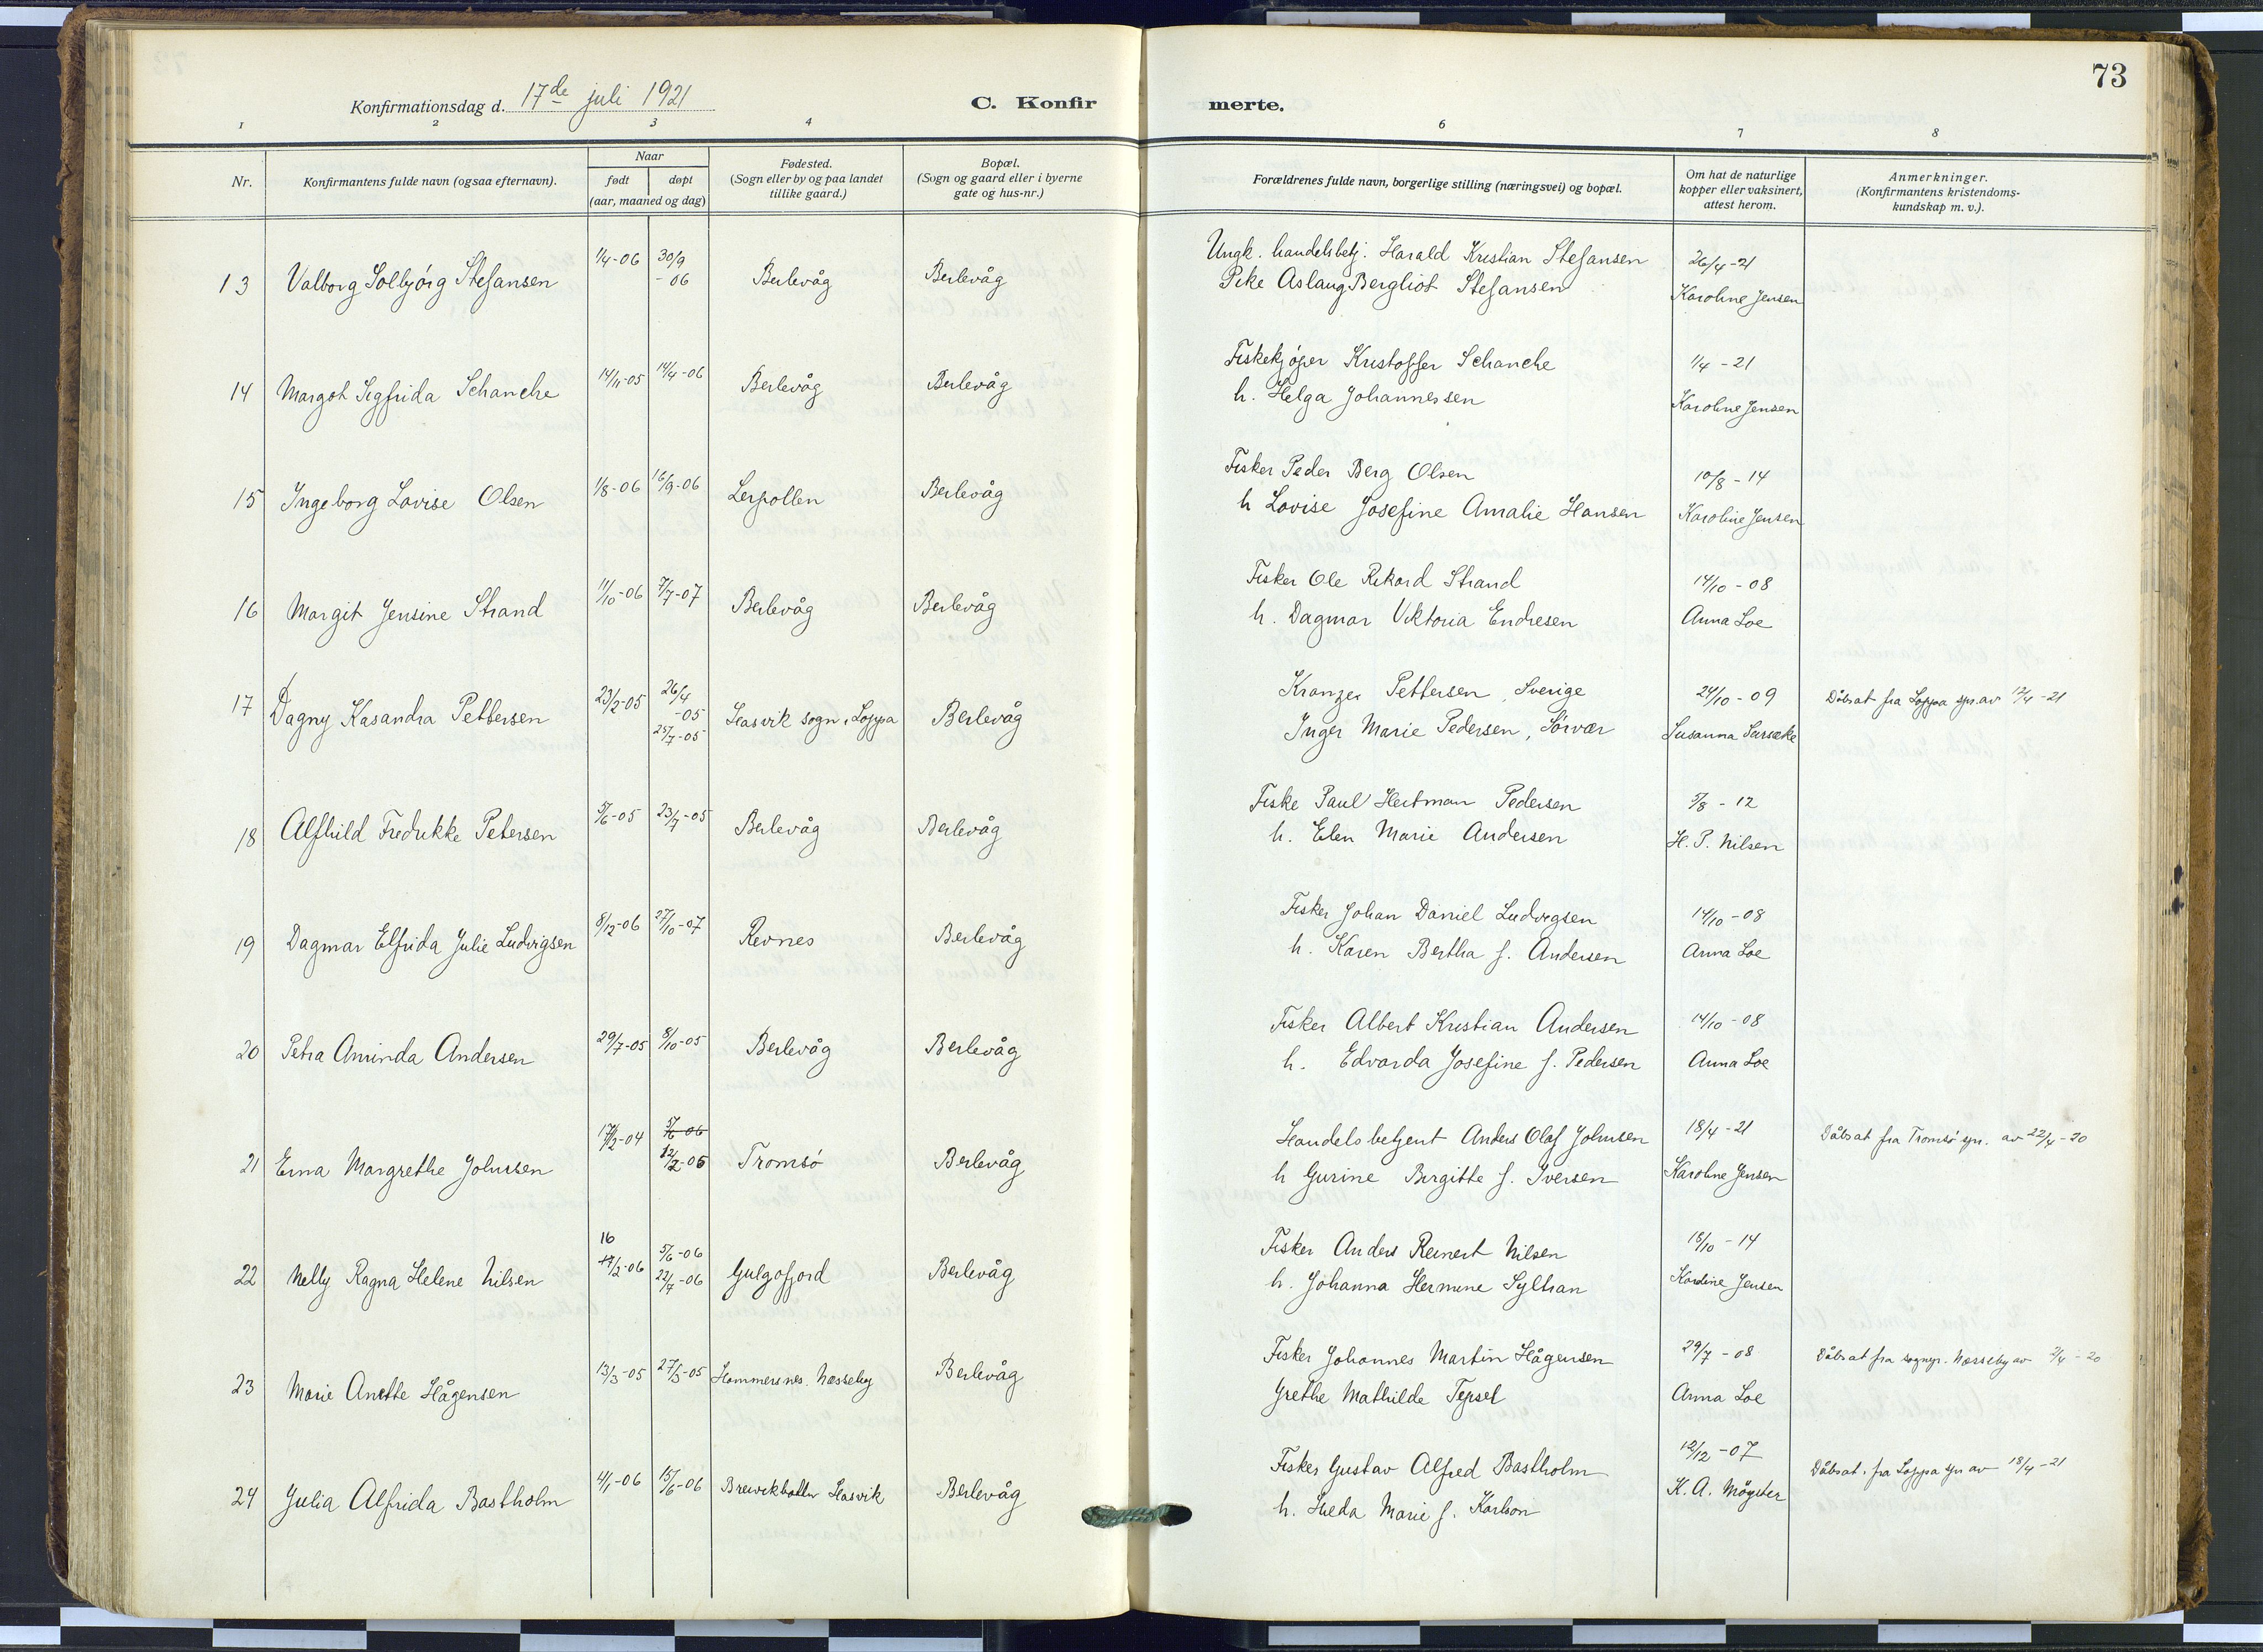 73
Konfirmationsdag d. 17de juli 1921
C. Konfir merte.
1 2 3 4 6 7 8
Nr.
Konfirmantens fulde navn (ogsaa efternavn).
Naar
født døpt
(aar, maaned og dag)
Fødested.
(Sogn eller by og paa landet
tillike gaard.)
Bopæl.
(Sogn og gaard eller i byerne
gate og hus-nr.)
Forældrenes fulde navn, borgerlige stilling (næringsvei) og bopæl.
Om hat de naturlige
kopper eller vaksinert,
attest herom.
Anmerkninger.
(Konfirmantens kristendoms-
kundskap m. v.).
13 Valborg Solbjørg Stefansen 1/4-06 30/9 -06 Berlevåg Berlevåg
Ungk. handelsbetj. Harald Kristian Stefansen 26/4-21
Pike Aslaug Bergliot Stefansen Karoline Jensen
14 Margot Sigfrida Schanche 14/11-05 14/4-06 Berlevåg Berlevåg
Fiskekjøper Kristoffer Schanche 1/4-21
h. Helga Johannessen Karoline Jensen
15 Ingeborg Lovise Olsen 1/8-06 16/9-06 Lerpollen Berlevåg
Fisker Peder Berg Olsen 10/8-14
h Lovise Josefine Amalie Hansen Karoline Jensen
16 Margit Jensine Strand 11/10-06 7/7-07 Berlevåg Berlevåg
Fisker Ole Rikard Strand 14/10-08
h. Dagmar Viktoria Endresen Anna Loe
17 Dagny Kasandra Pettersen 23/2-05 26/4 -05 25/7-05 Hasvik sogn, Loppa Berlevåg
Pettersen, Sverige 24/10-09 Dåbsat fra Loppa spr. av 12/4-21
Inger Marie Pedersen, Sørvær Susanna
18 Alfhild Fredrikke Petersen 5/6-05 23/7-05 Berlevåg Berlevåg
Fiske Paul Hertman Pedersen 5/8-12
h. Elen Marie Andersen H. P. Nilsen
19 Dagmar Elfrida Julie Ludvigsen 8/12-06 27/10-07 Revnes Berlevåg
Fisker Johan Daniel Ludvigsen 14/10-08
h. Karen Bertha f. Andersen Anna Loe
20 Petra Aminda Andersen 29/7-05 8/10-05 Berlevåg Berlevåg
Fisker Albert Kristian Andersen 14/10-08
h. Edvarda Josefine f. Pedersen Anna Loe
21 Erna Margrethe Johnsen 17/2-04 5/6-06 12/2-05 Tromsø Berlevåg
Handelsbetjent Anders Olaf Johnsen 18/4-21 Dåbsat fra Tromsø spr. av 22/4-20
h Gurine Birgitte f. Iversen Karoline Jensen
22 Nelly Ragna Helene Nilsen 16 17/2-06 5/6-06 22/7-06 Gulgofjord Berlevåg
Fisker Anders Reinert Nilsen 18/10-14
h. Johanna Hermine Sylfran Karoline Jensen
23 Marie Anette Hågensen 13/3-05 27/5-05 Hammersnes. Næsseby Berlevåg
Fisker Johannes Martin Hågensen 29/7-08 Dåbsat fra sognepr. Næsseby av 2/4-20
Grethe Mathilde Anna Loe
24 Julia Alfrida Bastholm 4/1-06 15/6-06 Hasvik Berlevåg
Fisker Gustav Alfred Bastholm 12/12-07 Dåbsat. fra Loppa spr av 18/4-21
h. Hilda Marie f. Karlson K. A.